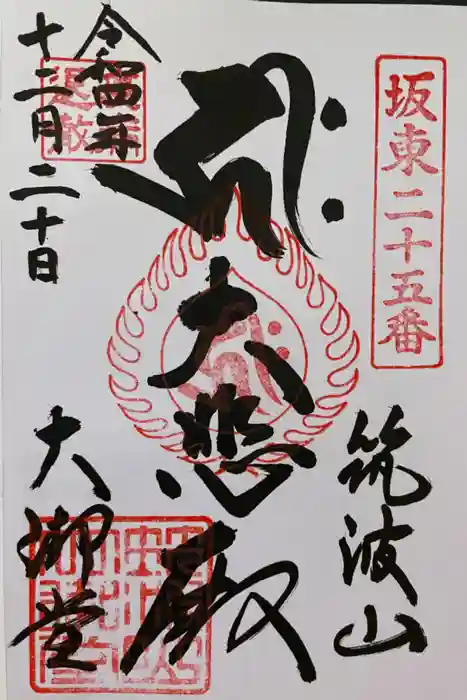 坂東二十五番
筑波山
大悲殿
令和四年
十二月二十日
大御堂